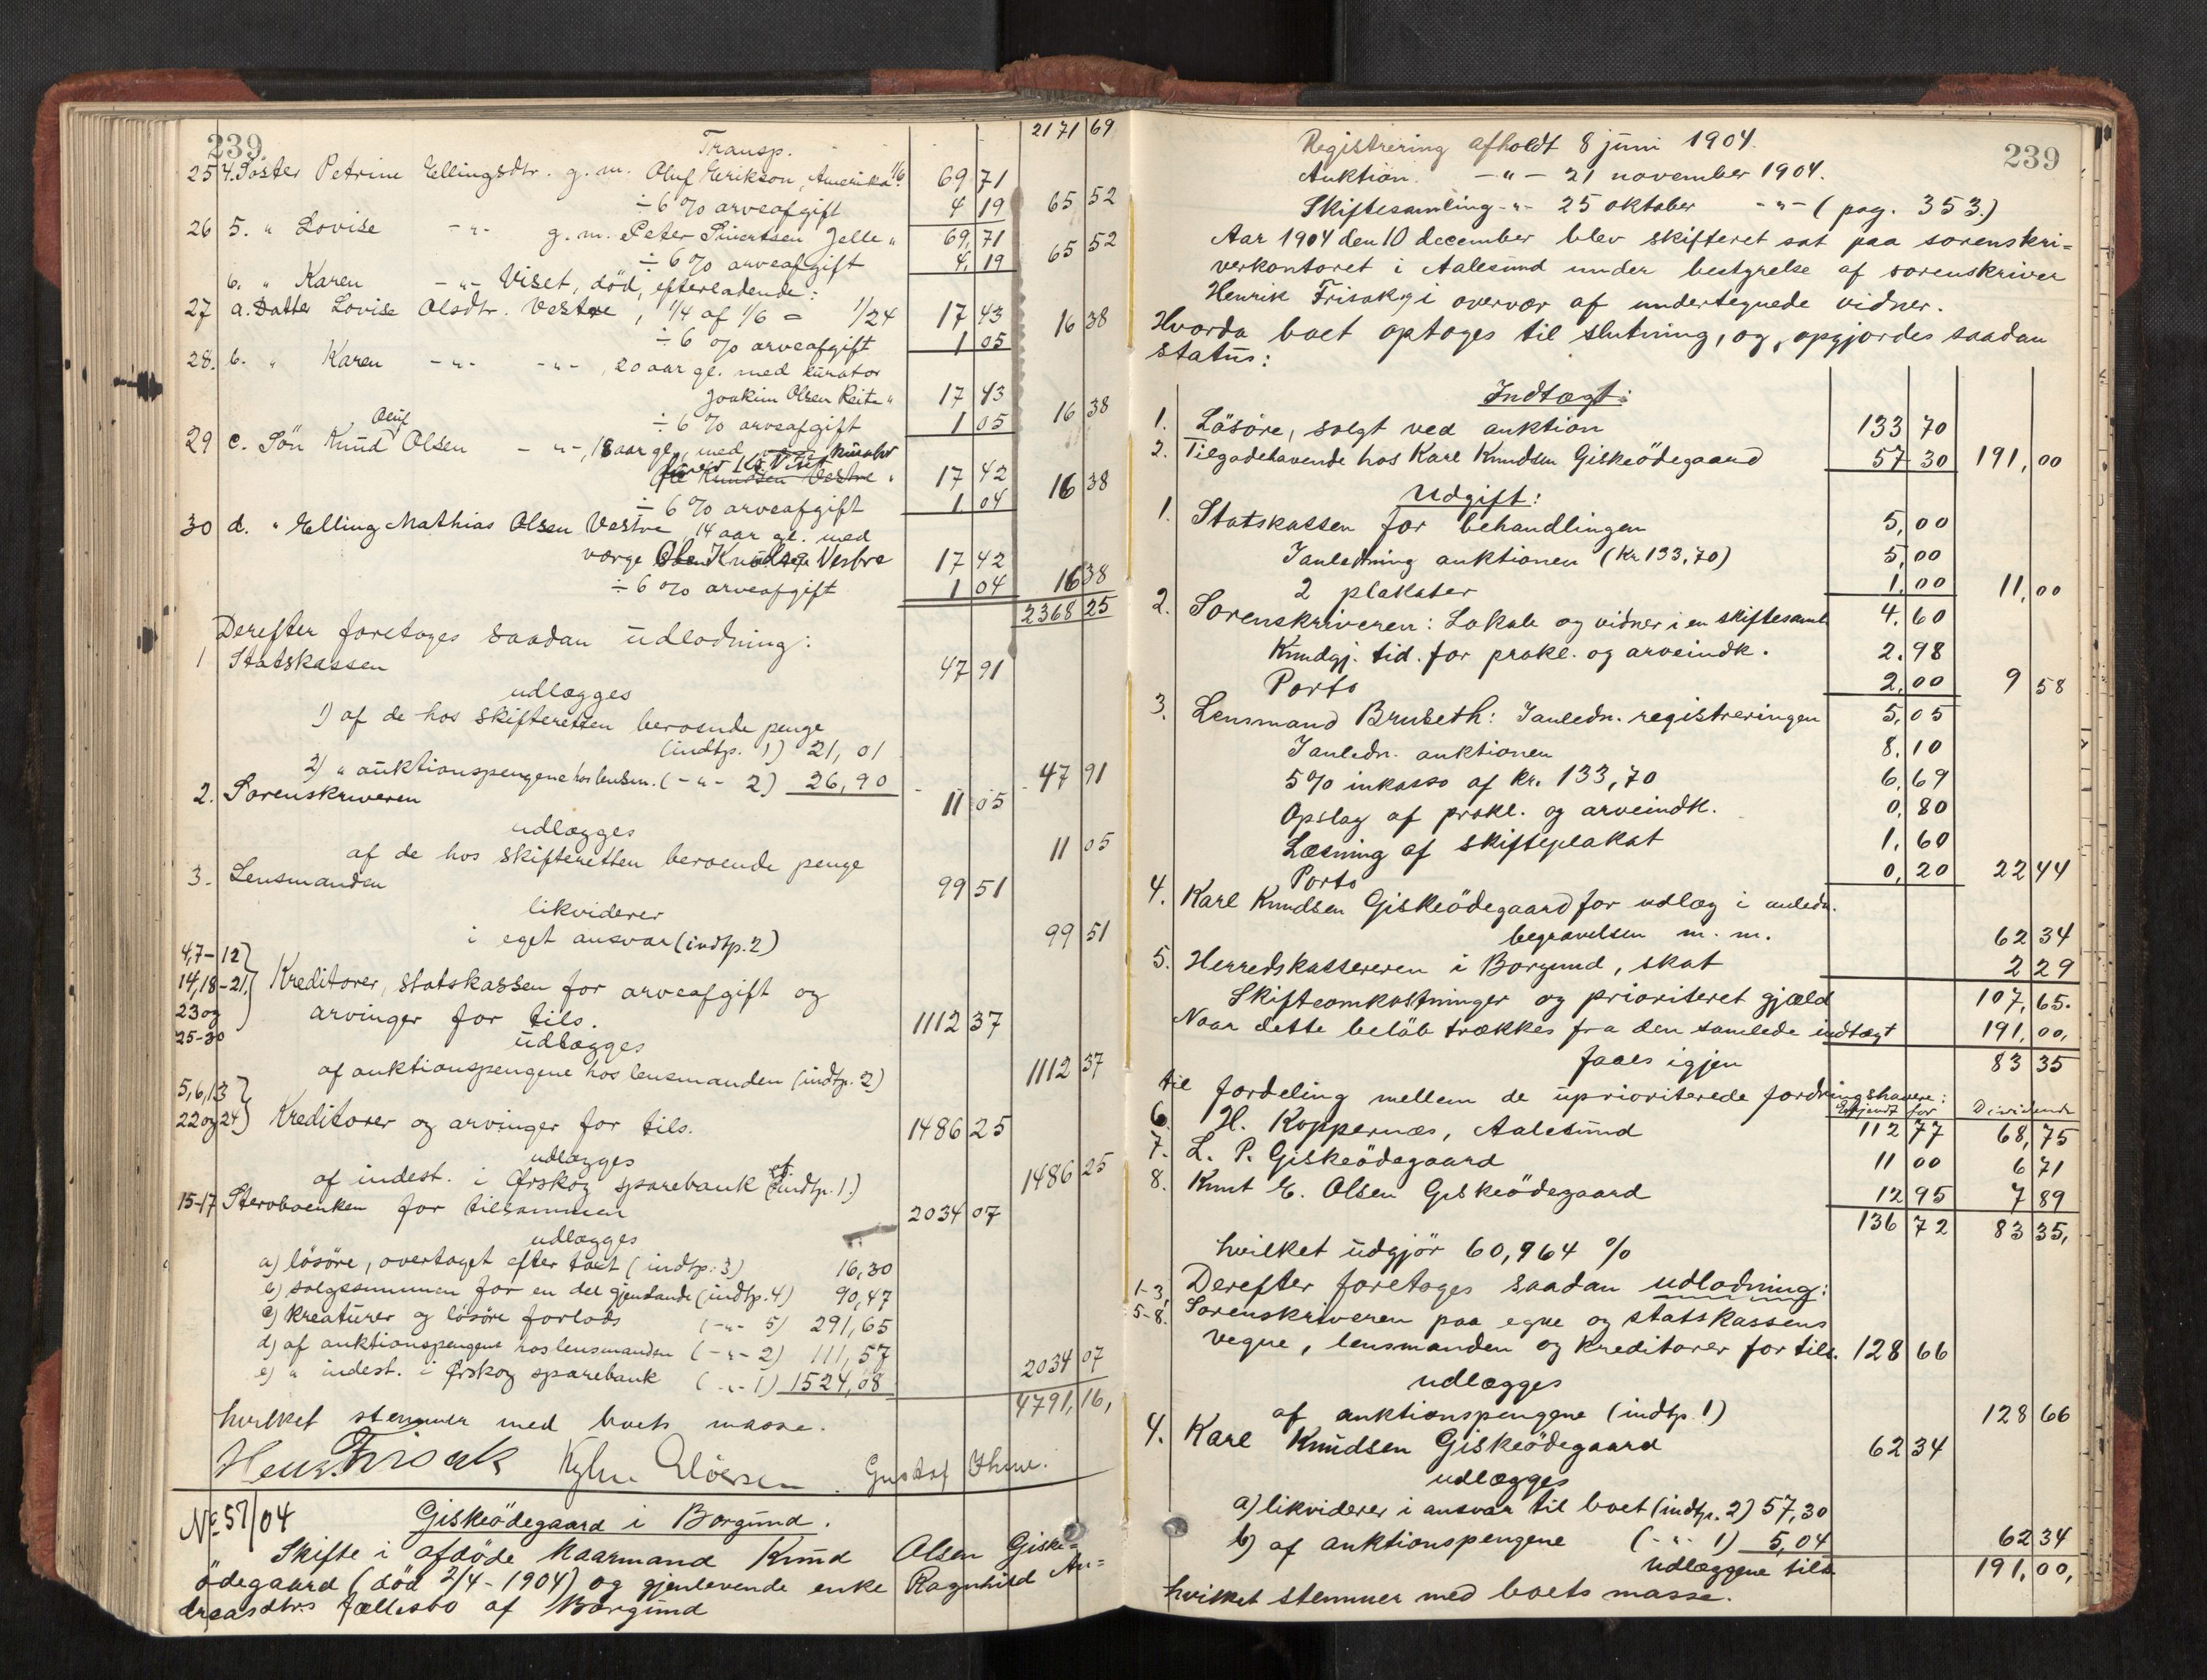 239
Transp. 2171 69
25 4. Söster Petrine Ellingsdtr. g. m. Oluf Erikson, Amerika 1/6 69 71
÷ 6 % arveafgift 4 19 65 52
26 5. " Lovise -"- g. m. Peter Sivertsen Gjelle " 69,71
÷ 6 % arveafgift 4,19 65 52
6. " Karen -"- Viset, död, efterladende:
27 a. Datter Lovise Olsdtr. Vestre, 1/4 af 1/6 = 1/24 17 43
÷ 6 % arveafgift 1 05 16 38
28. b. " Karen -"- -"-, 20 aar gl. med kurator
Joakim Olsen Reite " 17 43
÷ 6 % arveafgift 1 05 16 38
29 c. Sön Knud Oluf Olsen -"-, 18 aar gl., med kurator
Knudsen Vestre " 17 42
÷ 6 % arveafgift 1 04 16 38
30 d. " Elling Mathias Olsen Vestre, 14 aar gl. med
værge Ole Knudsen Vestre 17 42
÷ 6 % arveafgift 1 04 16 38
2368 25
Derefter foretoges saadan udlodning:
1 Statskassen 47 91
udlægges
1) af de hos skifteretten beroende penge
(indtp. 1) 21, 01
2) " auktionspengene hos lensm. (-"- 2) 26, 90 47 91
2. Sorenskriveren 11 05
udlægges
af de hos skifteretten beroende penge 11 05
3. Lensmanden 99 51
likviderer
i eget ansvar (indtp. 2) 99 51
4,7-12
14,18-21, Kreditorer, statskassen for arveafgift og
23 og arvinger for tils. 1112 37
25-30 udlægges
af auktionspengene hos lensmanden (indtp. 2) 1112 37
5,6,13
22 og 24 Kreditorer og arvinger for tils. 1486 25
udlægges
af indest. i Ørskog sparebank (indtp. 1.) 1486 25
15-17 Stervboenken for tilsammen 2034 07
udlægges
a) lösöre, overtaget efter taxt (indtp. 3) 16,30
b) salgssummen for en del gjenstande (indtp. 4) 90,47
c) kreaturer og lösöre forlods (-"- 5) 291,65
d) af auktionspengene hos lensmanden (-"- 2) 111,57
e) " indest. i Ørskog sparebank (-"- 1) 1524,08 2034 07
4791,16,
hvilket stemmer med boets masse.
Henr. Frisak Gustaf
№ 57/04 Giskeödegaard i Borgund.
Skifte i afdöde kaarmand Knud Olsen Giske-
ödegaard (död 2/4-1904) og gjenlevende enke Ragnhild An=
dreasdtrs fællesbo af Borgund
239
Registrering afholdt 8 juni 1904.
Auktion -"- 21 november 1904.
Skiftesamling -"- 25 oktober -"- (pag. 353.)
Aar 1904 den 10 december blev skifteret sat paa sorenskri=
verkontoret i Aalesund under bestyrelse af sorenskriver
Henrik Frisak, i overvær af undertegnede vidner.
Hvorda boet optoges til slutning, og opgjordes saadan
status:
Indtægt:
1. Lösöre, solgt ved auktion 133 70
2. Tilgodehavende hos Karl Knudsen Giskeödegaard 57 30 191,00
Udgift:
1. Statskassen for behandlingen 5,00
I anledning auktionen (Kr. 133,70) 5,00
2 plakater 1,00 11,00
2. Sorenskriveren: Lokale og vidner i en skiftesaml 4,60
Kundgj. tid. for prokl. og arveindk. 2.98
Porto 2,00 9 58
3. Lensmand Bruseth: I anledn. registreringen 5,05
I anledn. auktionen 8,10
5% inkasso af kr. 133,70 6,69
Opslag af prokl. og arveindk. 0,80
Læsning af skifteplakat 1,60
Porto 0,20 22 44
4. Karl Knudsen Giskeödegaard for udlæg i anledn.
begravelsen m. m. 62 34
5. Herredskassereren i Borgund, skat 2 29
Skifteomkostninger og prioriteret gjæld 107,65.
Naar dette belöb trækkes fra den samlede indtægt 191,00,
faaes igjen 83 35
til fordeling mellem de uprioriterede fordringshavere:
Godkjendt for Dividende
6. H. Koppernæs, Aalesund 112 77 68,75
7. L. P. Giskeödegaard 11 00 6 71
8. Knut E. Olsen Giskeödegaard 12 95 7 89
136 72 83 35,
hvilket udgjör 60,964 %
Derefter foretoges saadan udlodning:
1-3,
5-8. Sorenskriveren paa egne og statskassens
vegne, lensmanden og kreditorer for tils. 128 66
udlægges
af auktionspengene (indtp. 1) 128 66
4. Karl Knudsen Giskeödegaard 62 34
udlægges
a) likviderer i ansvar til boet (indtp. 2) 57,30
b) af auktionspengene (-"- 1) 5,04 62 34
udlæggene tils. 191,00,
hvilket stemmer med boets masse.